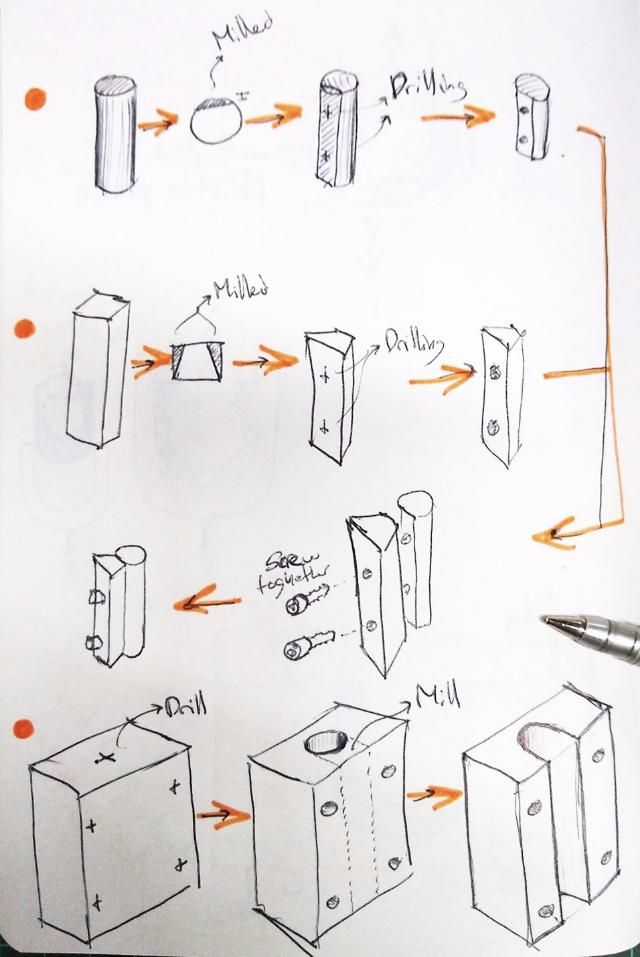 Milled
Drilling
Milled
Drilling
Screw
together
Drill
Mill